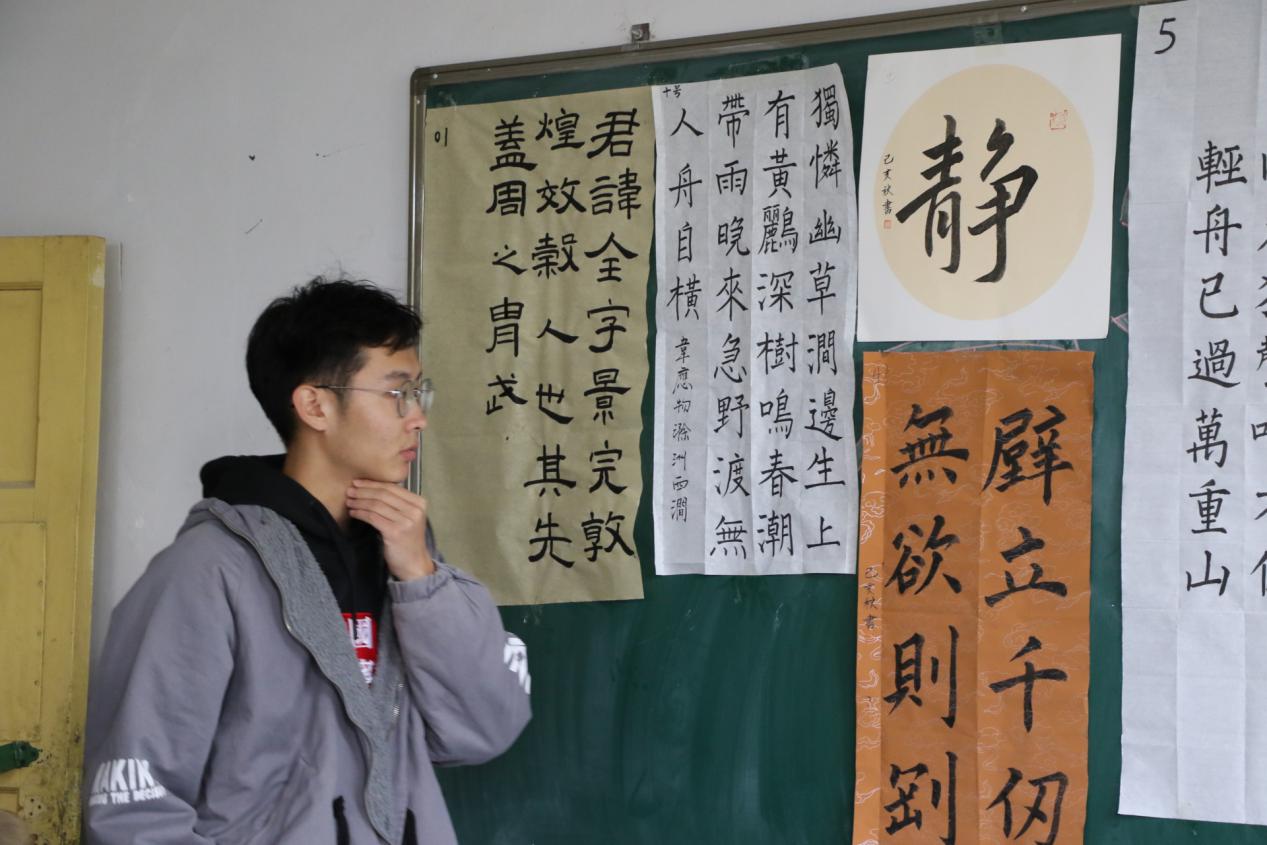 01
君諱全字景完敦
煌效穀人也其先
蓋周之胄武
十号
獨憐幽草澗邊生上
有黄鸝深樹鳴春潮
帶雨晚來急野渡無
人舟自橫
韋應物滁洲西澗
静
己亥秋書
壁立千仞
無欲則剛
己亥秋書
5
輕舟已過萬重山
THE